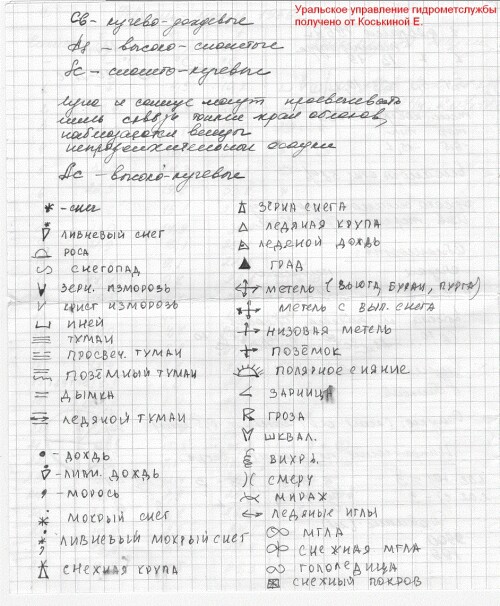 Уральское управление гидрометслужбы
получено от Коськиной Е.
Cb – кучево-дождевые
As – высоко-слоистые
Sc – слоисто-кучевые
Луна и солнце могут просвечивать
лишь сквозь тонкие края облаков,
наблюдаются всегда
непродолжительные осадки
Ac – высоко-кучевые
* – снег
ливневый снег
роса
снегопад
зерн. изморозь
крист изморозь
иней
туман
просвеч. туман
позёмный туман
дымка
ледяной туман
дождь
ливн. дождь
морось
мокрый снег
ливневый мокрый снег
снежная крупа
зёрна снега
ледяная крупа
ледяной дождь
град
метель (вьюга, буран, пурга)
метель с вып. снега
низовая метель
позёмок
полярное сияние
зарница
гроза
шквал.
вихрь.
смерч
мираж
ледяные иглы
мгла
снежная мгла
гололедица
снежный покров